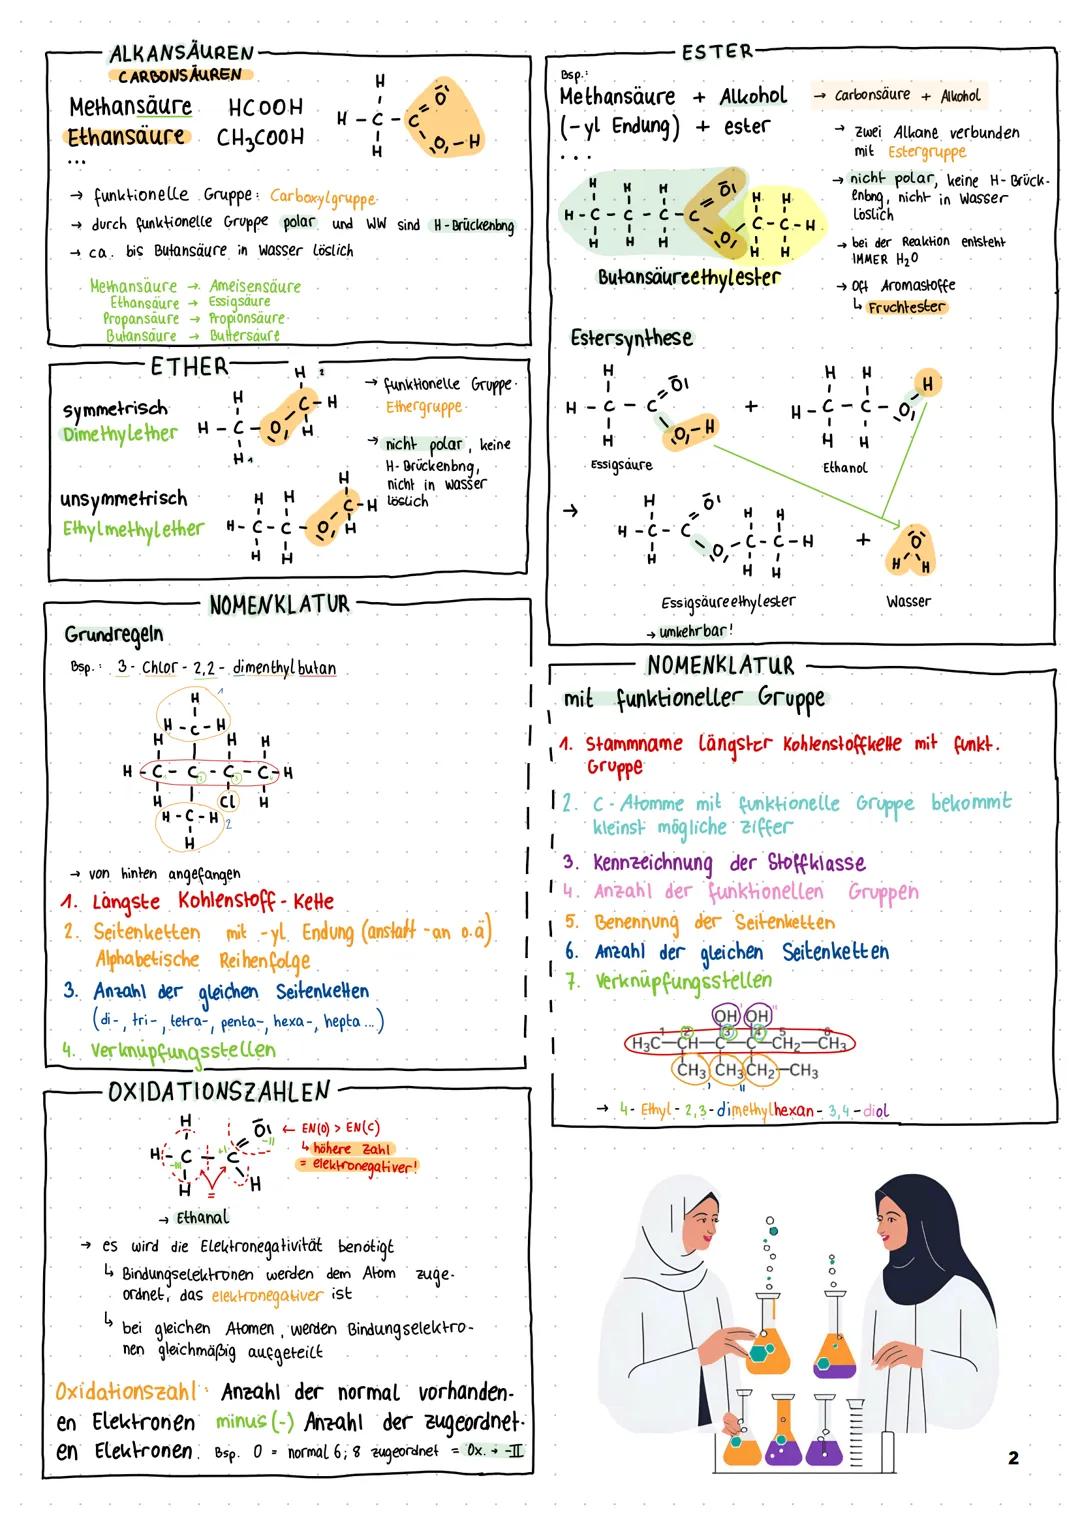 ALKANSÄUREN
CARBONSÄUREN
Methansäure HCOOH
Ethansäure CH3COOH
...
→ funktionelle Gruppe: Carboxylgruppe
→ durch funktionelle Gruppe polar und WW sind H-Brückenbng
→ ca. bis Butansäure in Wasser löslich
Methansäure → Ameisensäure
Ethansäure → Essigsäure
Propansäure → Propionsäure
Butansäure → Buttersäure
ETHER
symmetrisch
Dimethylether
unsymmetrisch
Ethylmethylether
→ funktionelle Gruppe:
Ethergruppe
→ nicht polar, keine
H-Brückenbng,
nicht in Wasser
löslich
NOMENKLATUR
Grundregeln
Bsp.: 3-Chlor-2,2-dimenthylbutan
→ von hinten angefangen
1. Längste Kohlenstoff-Kette
2. Seitenketten mit -yl Endung (anstatt -an o.ä)
Alphabetische Reihenfolge
3. Anzahl der gleichen Seitenketten
(di-, tri-, tetra-, penta-, hexa-, hepta...)
4. Verknüpfungsstellen
OXIDATIONSZAHLEN
← EN(O) > EN(C)
↳ höhere Zahl
= elektronegativer!
→ Ethanal
→ es wird die Elektronegativität benötigt
↳ Bindungselektronen werden dem Atom zuge-
ordnet, das elektronegativer ist
↳ bei gleichen Atomen, werden Bindungselektro-
nen gleichmäßig aufgeteilt
Oxidationszahl: Anzahl der normal vorhanden-
en Elektronen minus (-) Anzahl der zugeordnet-
en Elektronen. Bsp. O = normal 6; 8 zugeordnet = Ox. → -II
ESTER
Bsp.:
Methansäure + Alkohol
(-yl Endung) + ester
...
→ Carbonsäure + Alkohol
→ zwei Alkane verbunden
mit Estergruppe
→ nicht polar, keine H-Brück-
enbng, nicht in Wasser
löslich
→ bei der Reaktion entsteht
IMMER H2O
→ Oft Aromastoffe
↳ Fruchtester
Butansäureethylester
Estersynthese
Essigsäure
+
Ethanol
→
Essigsäureethylester
+
Wasser
→ umkehrbar!
NOMENKLATUR
mit funktioneller Gruppe
1. Stammname längster Kohlenstoffkette mit funkt.
Gruppe
2. C-Atomme mit funktionelle Gruppe bekommt
kleinst mögliche Ziffer
3. Kennzeichnung der Stoffklasse
4. Anzahl der funktionellen Gruppen
5. Benennung der Seitenketten
6. Anzahl der gleichen Seitenketten
7. Verknüpfungsstellen
OH OH
1 2 3 4 5 6
H3C—CH—C—C—CH2—CH3
CH3 CH3 CH2—CH3
→ 4-Ethyl-2,3-dimethylhexan-3,4-diol
2